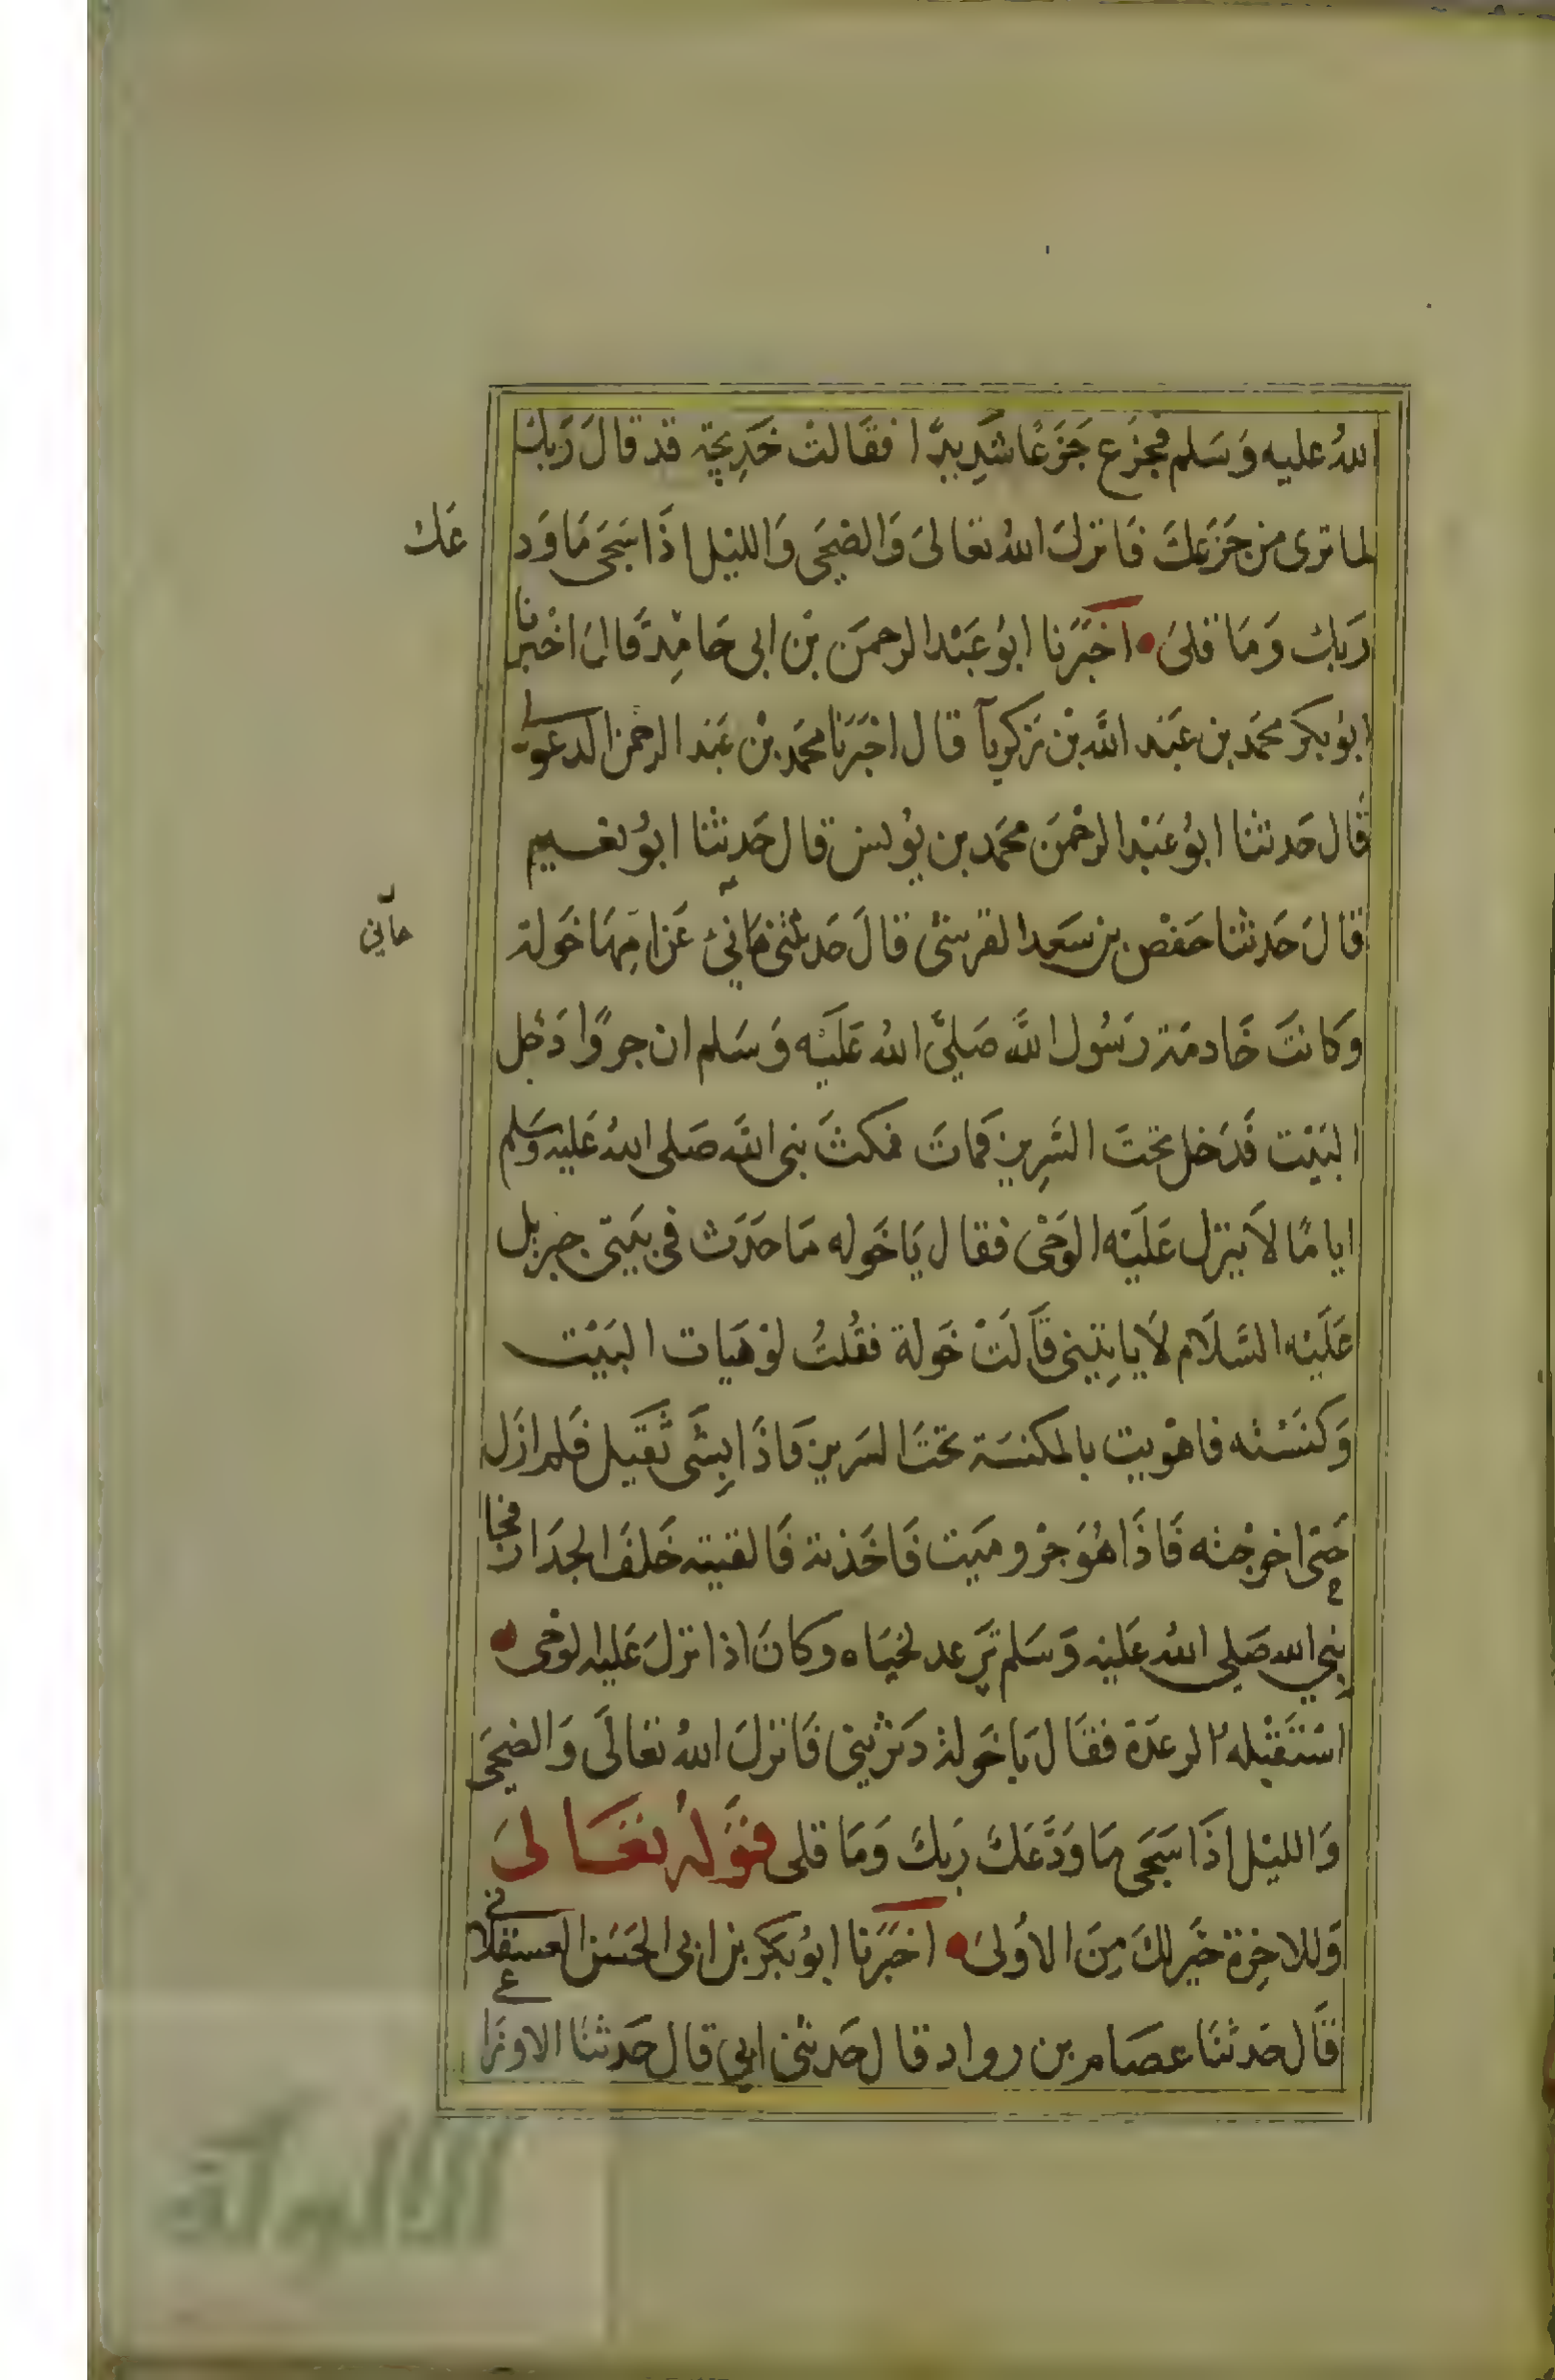 الله عليه وَسَلم فجزَع جَزَعًا شَدِيدًا فقَالتْ خَدِيجَة قد قالَ رَبك
لما ترى من جَزَعِكَ فَانزلَ اللهُ تعَالىَ وَالضحَى وَالليْل اذَا سَجَى مَاوَد
عَك
رَبك وَمَا قلىَ • اخبَرنا ابوُ عَبْد الرحمَن بْن ابى حَامِد قَال اخْبرنا
ابوُ بكر محمَد بن عَبْد الله بْن زكريآ قال اخبَرَنا محمَد بْن عَبْد الرحمن الدعولى
قَال حَدثنا ابوُ عَبْد الرحْمَن محمَد بن يوُنس قال حَدثنا ابوُ نعسيم
قالَ حَدثنا حَفصْ بن سَعِد القرشى قالَ حَدثتنى مانى عَن امِهَا خَولة
مآنى
وَكانتَ خَادمَة رَسُول الله صَلىَّ اللهُ عَلَيْه وَسَلم ان جروًا دَخل
البَيْت فَدَخل تحتَ السَرِير فمَاتَ فمكثَ نبى الله صَلى اللهُ عَليْه وَسَلم
ايامًا لاَ ينزل عَلَيْه الوَحْى فقال يَا خَوله مَا حَدَث فى بَيتى جبريل
عَلَيْه السَّلاَم لاَ ياتِينى قَالَتْ خَولة فقُلتُ لوْ هَيات البَيْت
وَكنَسْته فاهْويت بالمكنسَة تحتَ السَرير فَاذَا بِشَى ثقَيل فَلم ازَل
حَتى اخرجْته فَاذَا هُوَ جرْو مَيت فَاخَذته فَالقيته خَلفَ الجدَار فجا
نبي الله صَلى اللهُ عَليْه وَسَلم تَرعد لحيَاه وكانَ اذا نزلَ عَليه الوحَى •
استَقبْله الرعدَة فقَال يَا خَولة دَثرْيني فَانزلَ اللهُ تعَالَى وَالضحَى
وَالليْل اذَا سَجَى مَا وَدَّعَكَ رَبكَ وَمَا قلى قوَلهُ تعَالىَ
وَللاخِرَة خَير لكَ مِنَ الاوُلىَ • اخبَرنا ابوُ بكر بن ابى الحَسَن العسقلانى
قَال حَدثنَا عصَام بن رواد قال حَدثنى ابي قال حَدثنَا الاوزَا